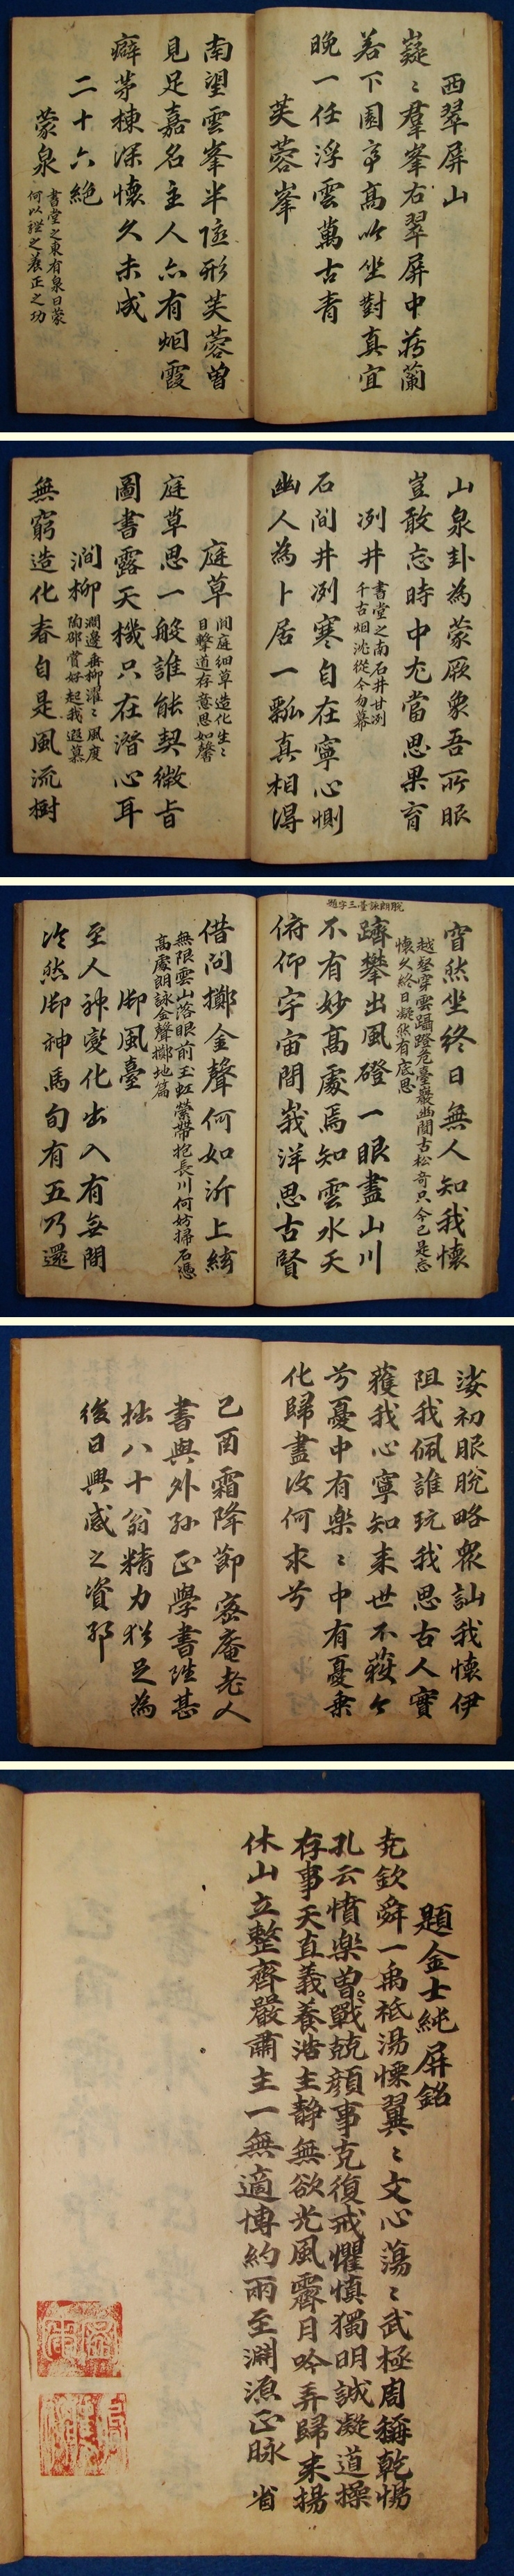 西翠屏山
嶷〻羣峯右翠屏中藏蘭
若下園亭高吟坐對真宜
晚一任浮雲萬古青
芙蓉峯
南望雲峯半隱形芙蓉曾
見足嘉名主人亦有烟霞
癖茅棟深懷久未成
二十六絶
蒙泉
書堂之東有泉曰蒙
何以軆之養正之功
山泉卦為蒙厥象吾所服
豈敢忘時中尤當思果育
冽井
書堂之南石井甘冽
千古烟沈從今勿幕
石間井冽寒自在寧心惻
幽人為卜居一瓢真相得
庭草
閒庭細草造化生〻
目擊道存意思如馨
庭草思一般誰能契微旨
圖書露天機只在潛心耳
澗柳
澗邊垂柳濯〻風度
陶邵賞好起我遐慕
無窮造化春自是風流樹
脫朗詠臺三字題
窅然坐終日無人知我懷
越壑穿雲躡蹬危臺巖幽閴古松奇只今已是忘
懷久終日凝然有底思
躋攀出風磴一眼盡山川
不有妙高處焉知雲水天
俯仰宇宙間峩洋思古賢
借問擲金聲何如沂上絃
無限雲山落眼前玉虹縈帶抱長川何妨掃石憑
高處朗詠金聲擲地篇
御風臺
至人神變化出入有無間
泠然御神馬旬有五乃還
婆初服脫略衆訕我懷伊
阻我佩誰玩我思古人實
獲我心寧知来世不獲今
兮憂中有樂〻中有憂乗
化歸盡汝何求兮
己酉霜降節密庵老人
書與外孫正學書雖甚
拙八十翁精力猶足為
後日興感之資耶
題金士純屏銘
尭欽舜一禹祗湯慄翼〻文心蕩〻武極周稱乾惕
孔云憤楽曽戰兢顔事克復戒懼慎獨明誠凝道操
存事天直義養浩主静無欲光風霽月吟弄歸来揚
休山立整齊嚴肅主一無適博約兩至淵源正脉 省